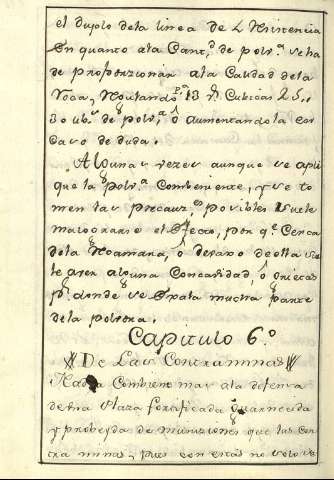 el duplo dela linea de L
En quanto ala Cant.d de polv.a se ha
de proporzionar ala Calidad dela
Roca, 13 Cubicas 25,
30 de polv.a, ô aumentandola
caso de duda.
Algunas vezes aunque se apli
que la polv.a Combeniente, y se to
men las precauz.s posibles suele
malograrse el efecto, por q.e Cerca
dela ô devaxo de ella se
alguna Concavidad, ô grietas
p.r donde se mucha parte
dela polvora.
Capitulo 6.º
De Las Contraminas
Nada Combiene mas ala defensa
de una Plaza fortificada Guarnecida
y probeyda de municiones que las con
tra minas, pues con estas no solo se